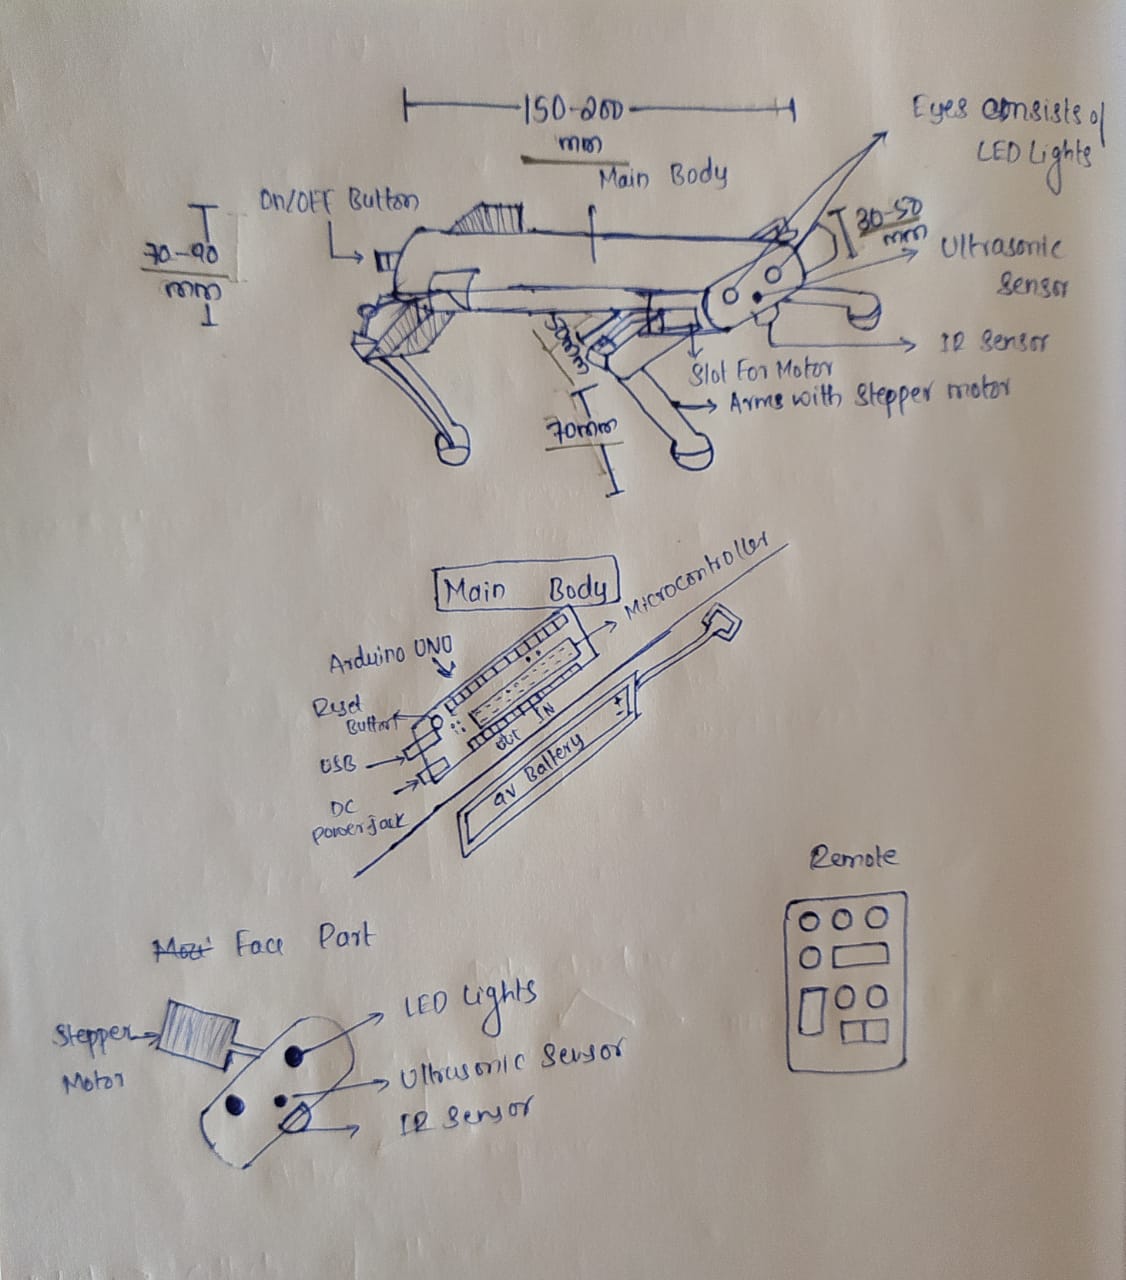 150-200
mm
Eyes consists of
LED Lights
Main Body
On/OFF Button
70-90
mm
30-50
mm
Ultrasonic
Sensor
IR Sensor
50mm
Slot For Motor
Arms with Stepper motor
70mm
Main Body
Microcontroller
Arduino UNO
Reset
Button
USB
DC
Power jack
OUT IN
+
-
9V Battery
Remote
Face Part
LED Lights
Stepper
Motor
Ultrasonic Sensor
IR Sensor